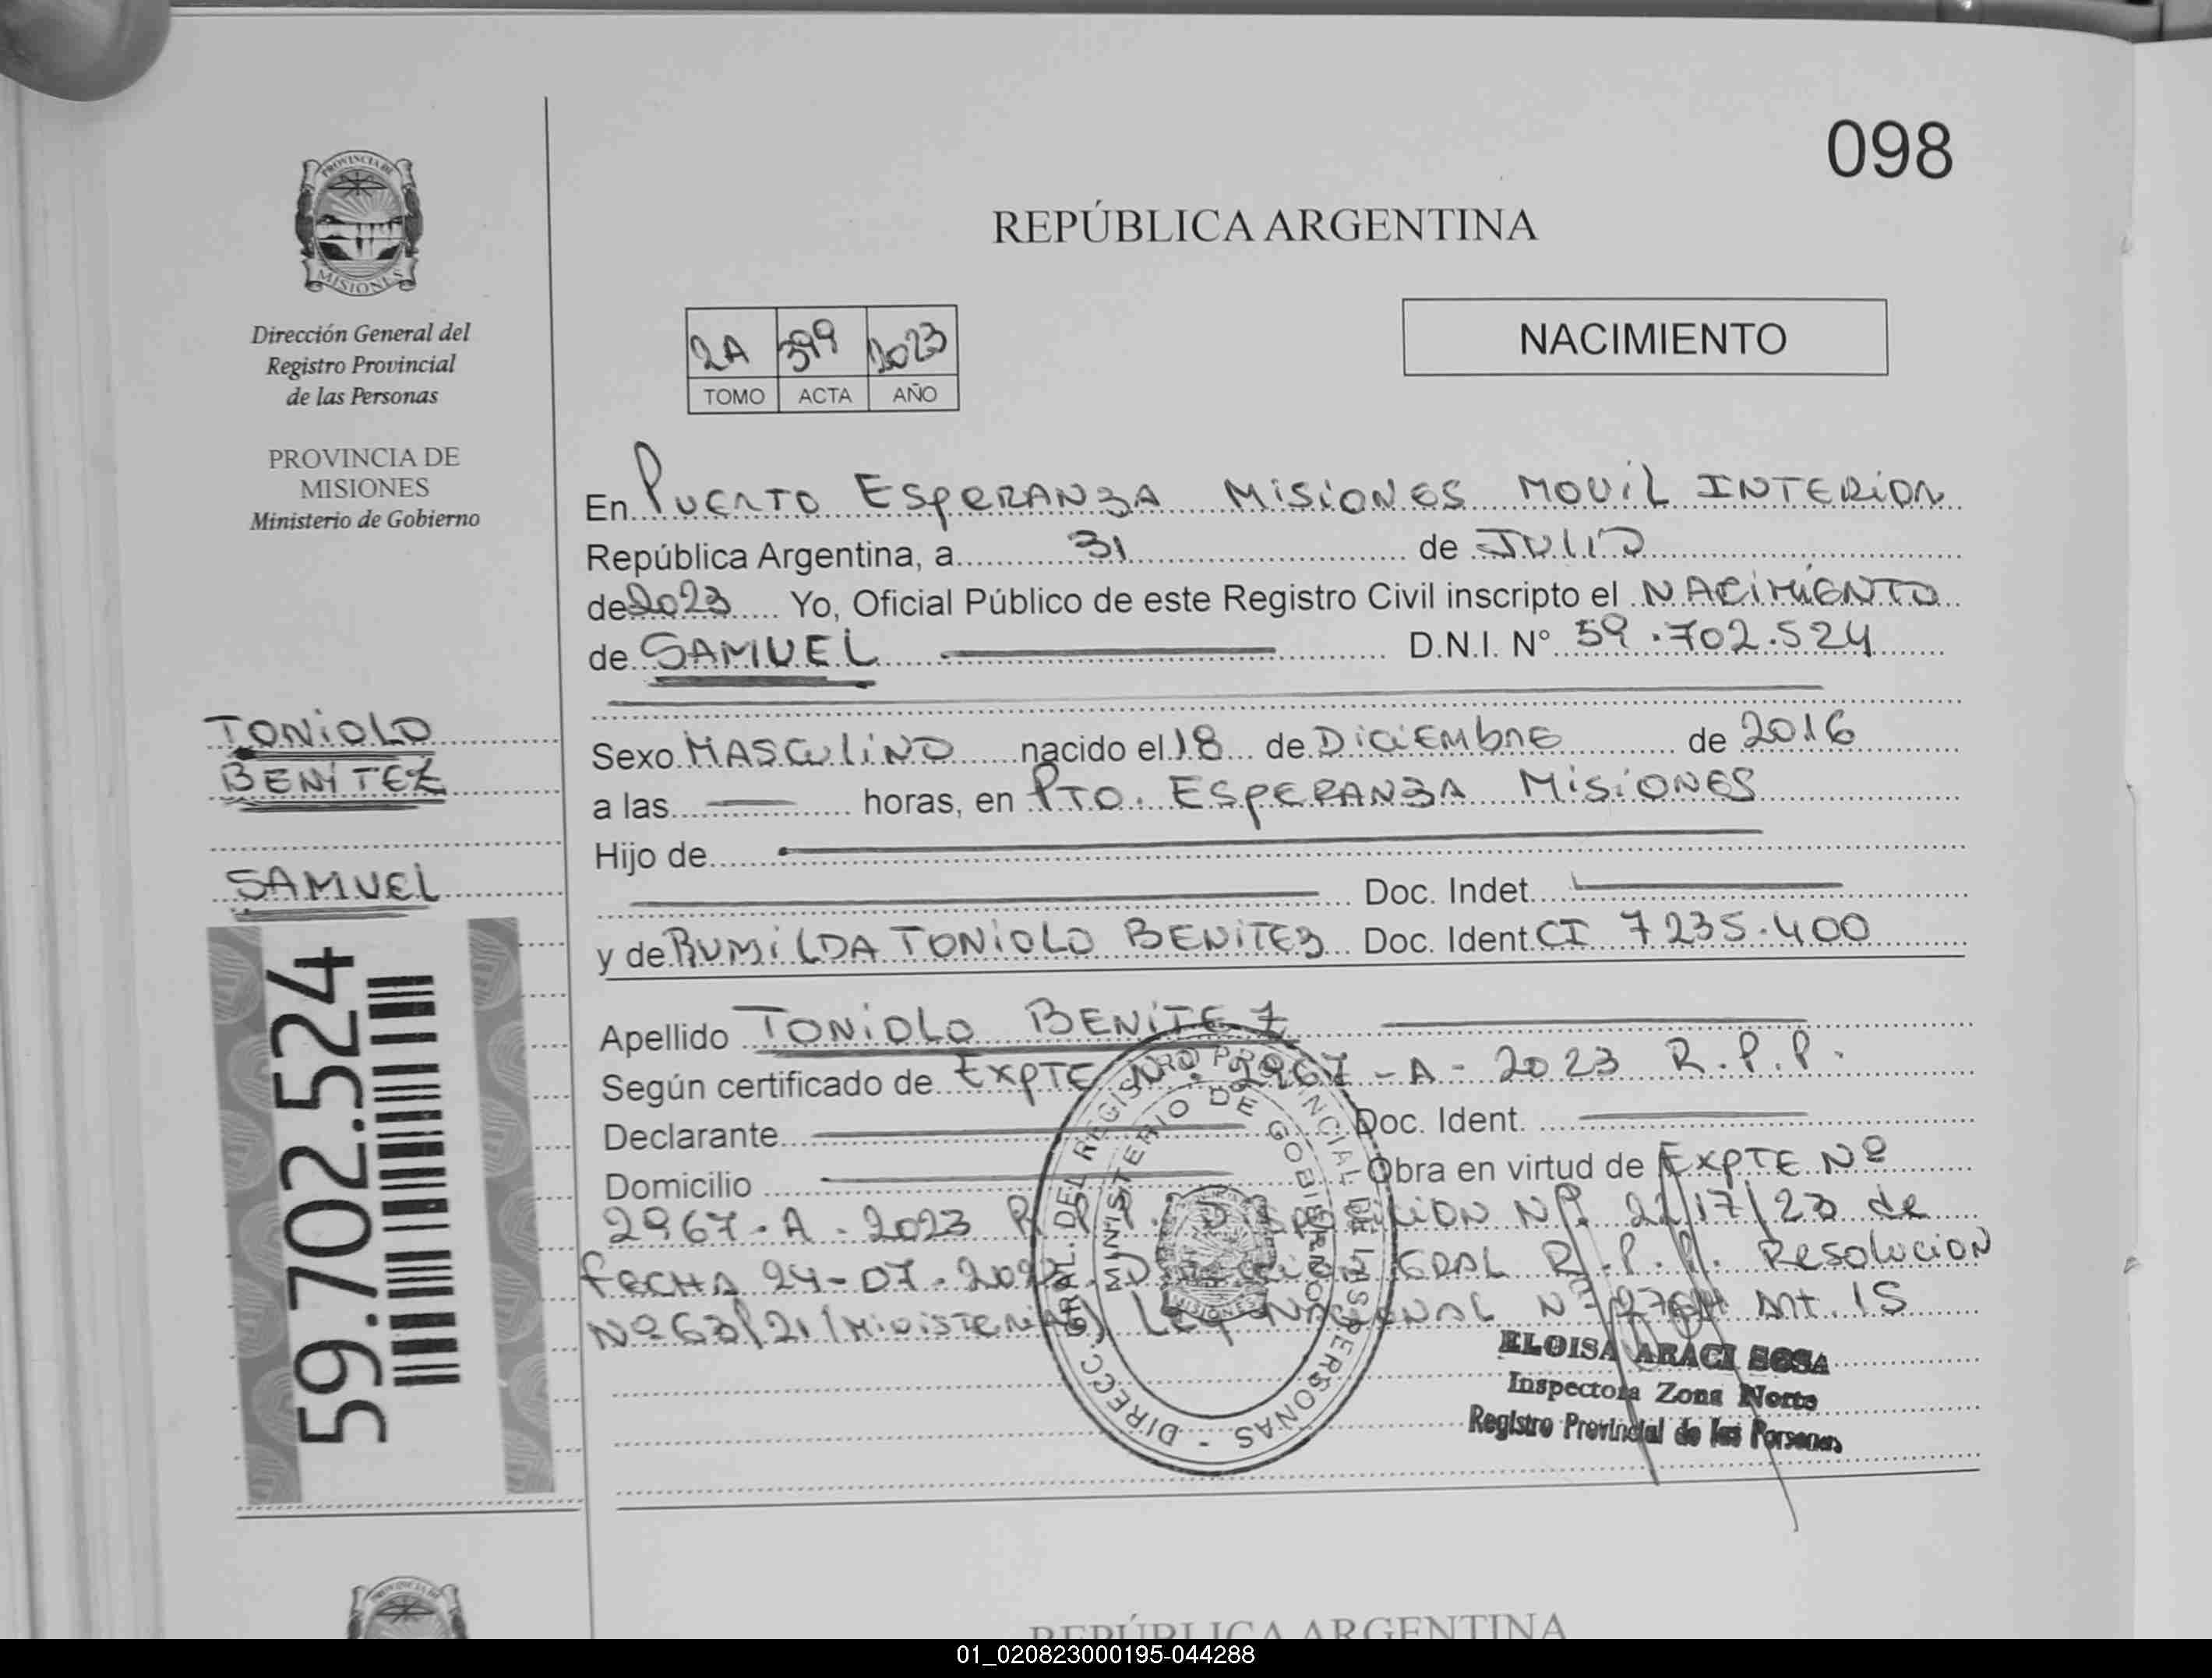 098
PROVINCIA DE
MISIONES
Dirección General del
Registro Provincial
de las Personas
PROVINCIA DE
MISIONES
Ministerio de Gobierno
TONIOLO
BENITEZ
SAMUEL
59.702.524
REPÚBLICA ARGENTINA
2A 399 2023
TOMO ACTA AÑO
NACIMIENTO
En PUERTO ESPERANZA MISIONES MOVIL INTERIOR
República Argentina, a 31 de JULIO
de 2023 Yo, Oficial Público de este Registro Civil inscripto el NACIMIENTO
de SAMUEL D.N.I. N° 59.702.524
Sexo MASCULINO nacido el 18 de DICIEMBRE de 2016
a las horas, en PTO. ESPERANZA MISIONES
Hijo de
Doc. Indet.
y de RUMILDA TONIOLO BENITEZ Doc. Ident. CI 7235.400
Apellido TONIOLO BENITEZ
Según certificado de EXPTE Nº 2967-A-2023 R.P.P.
Declarante Doc. Ident.
Domicilio Obra en virtud de EXPTE Nº
2967-A-2023 R.P.P. DISPOSICION Nº 2217/23 de
FECHA 24-07-2023 GRAL R.P.P. Resolucion
Nº 63/21 (MINISTERIAL) LEY NACIONAL Art. 15
DIRECC. GRAL. DEL REGISTRO PROVINCIAL DE LAS PERSONAS -
MINISTERIO DE GOBIERNO
MISIONES
ELOISA ARACI SOSA
Inspectora Zona Norte
Registro Provincial de las Personas
REPÚBLICA ARGENTINA
01_020823000195-044288